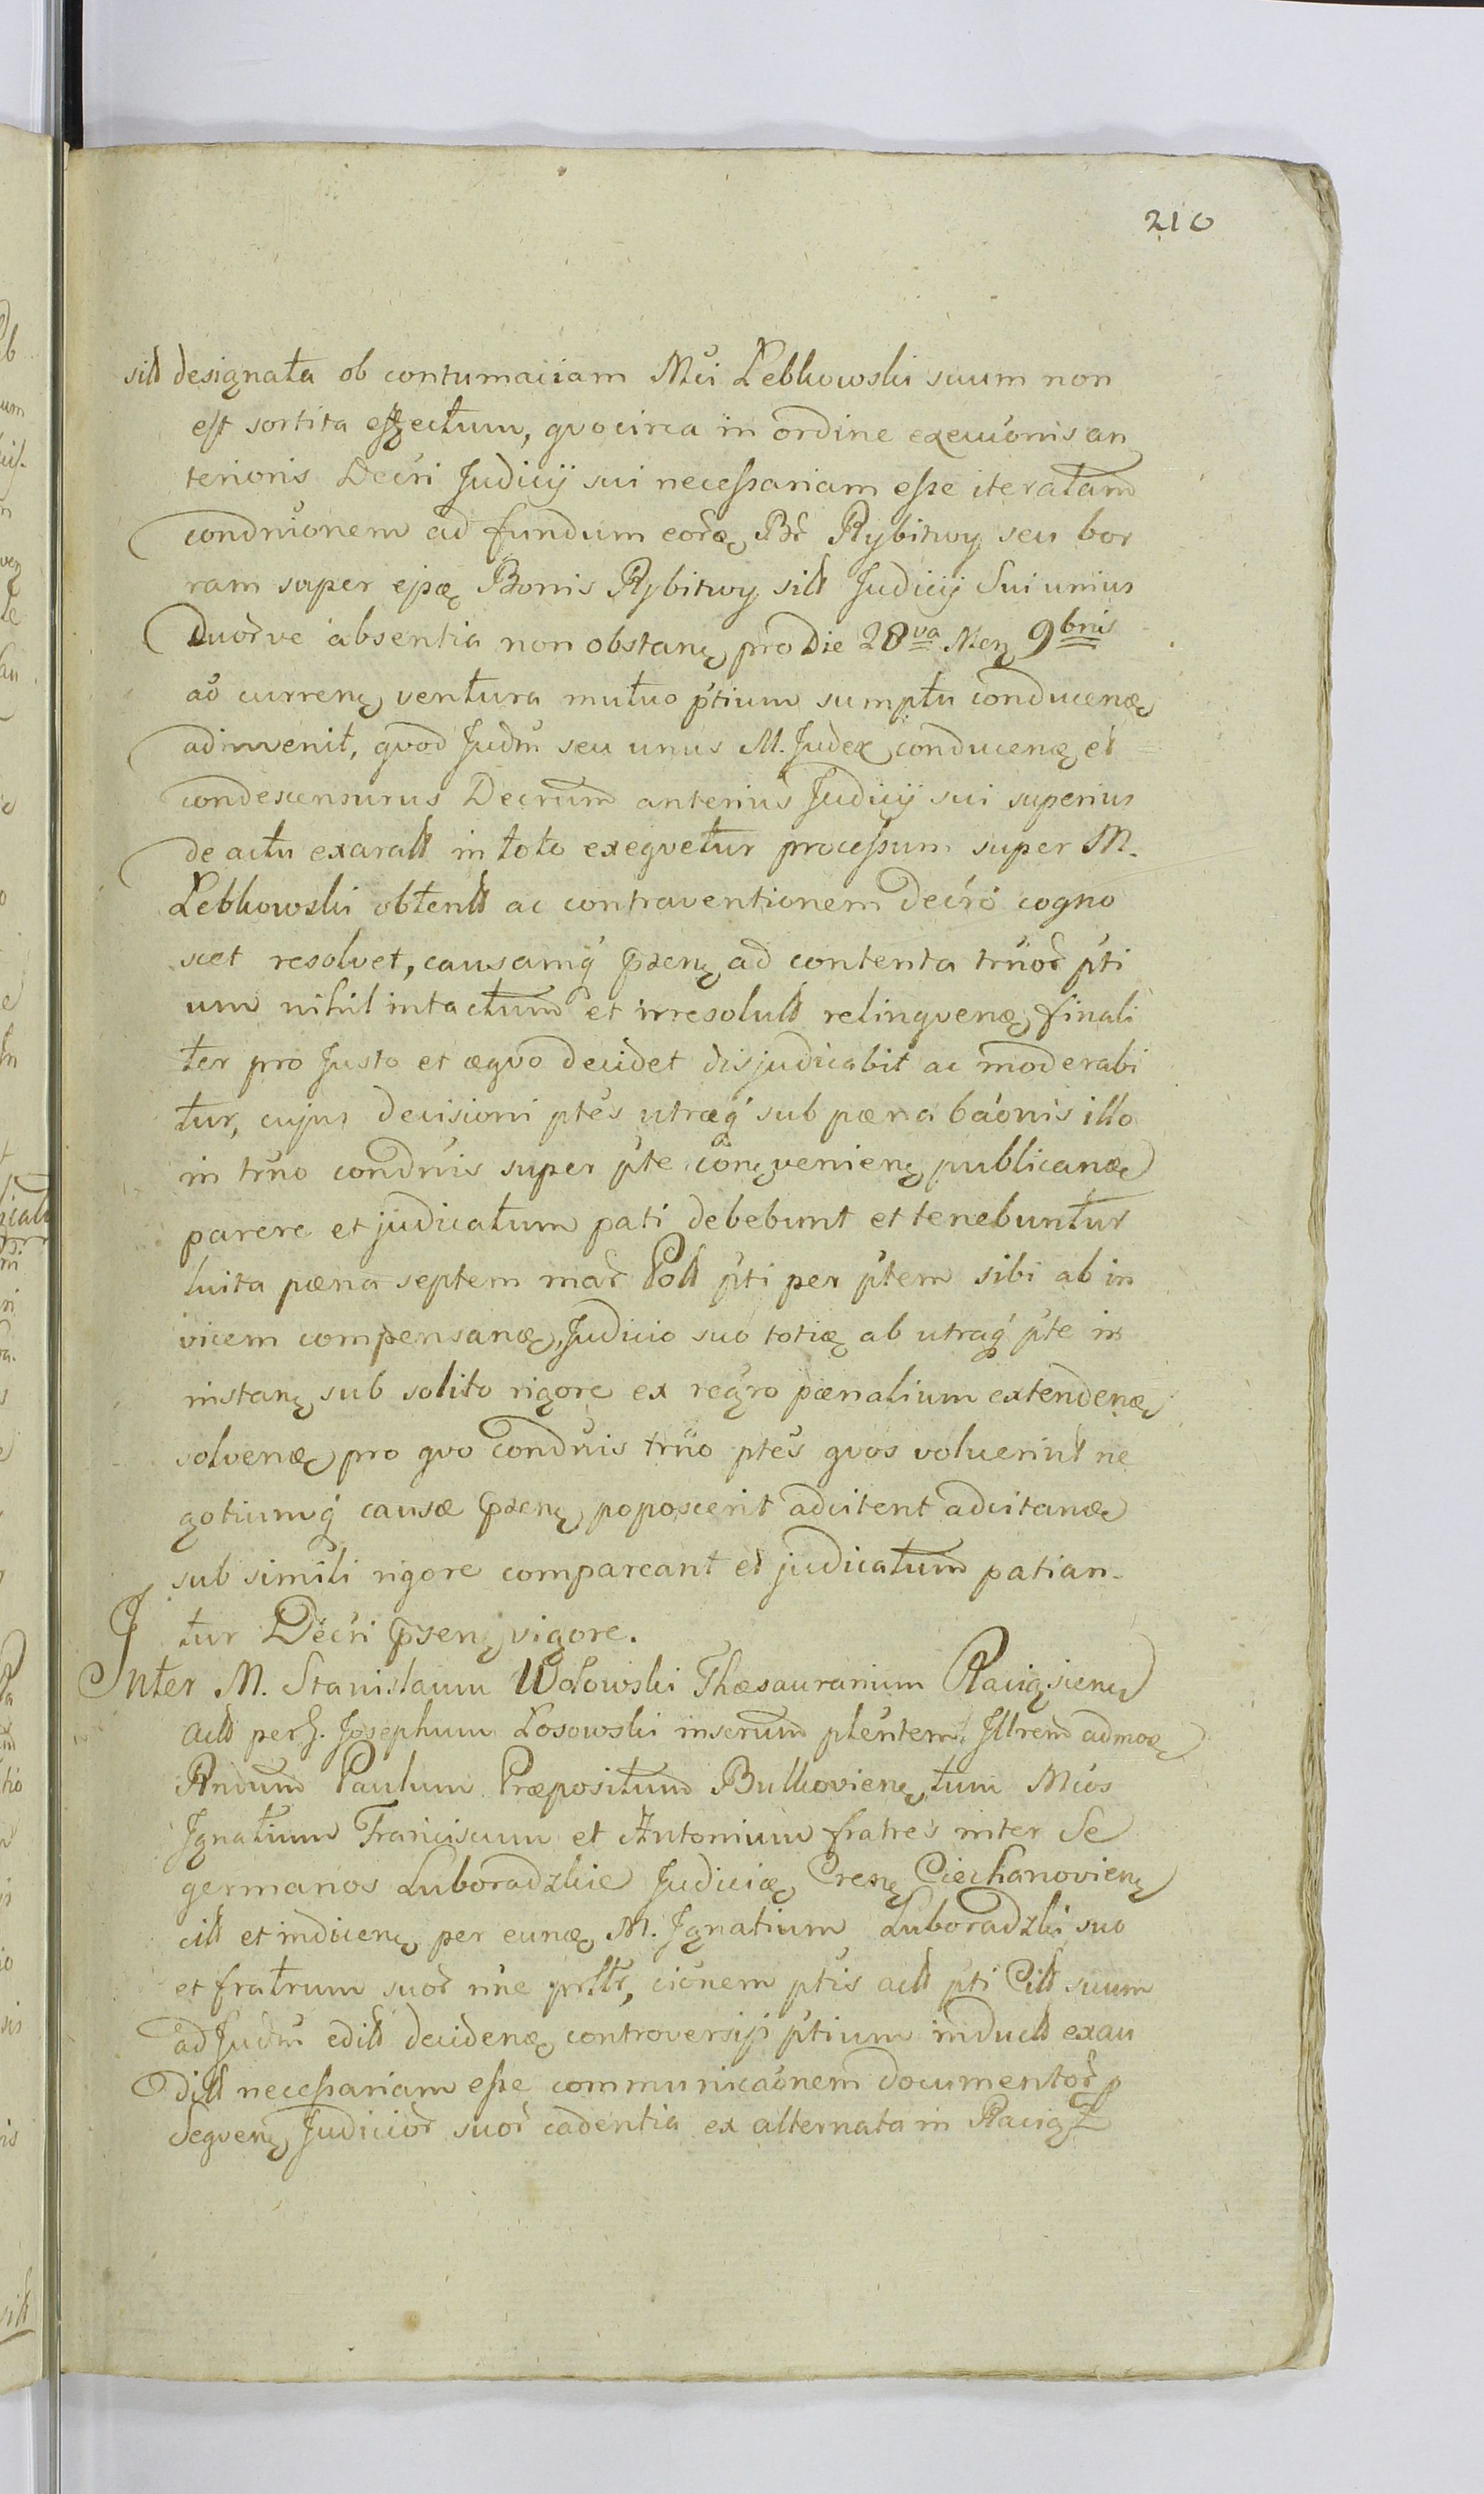 210
sitt designata ob contumaciam Mci Łebkowski suum non
est sortita effectum, qvocirca in ordine execuonis an
terioris Decri Judicij sui necessariam esse iteratam
condnionem ad fundum eorẹ Br Rybitwy seu bor
ram super ejsę Bonis Rybitwy sitt Judicij Sui unius
Duorve absentia non obstanę pro Die 28va Men 9bris
ao currenę ventura mutuo ptium sumptu conducenę
adinvenit, qvod Judm seu unus M. Judex conducenę et
condescensurus Decrum anterius Judicij sui superius
de actu exaratt in toto exeqvetur processum super M.
Łebkowski obtentt ac contraventionem decro cogno
scet resolvet, causamq psenę ad contenta trnor pti
um nihil intactum et irresolutt relinqvenę finali
ter pro Justo et æqvo decidet disjudicabit ac moderabi
tur, cujus decisioni ptes utraq sub pæna baonis illo
in trno condnis super pte conęvenienę publicanę
parere et judicatum pati debebunt et tenebuntur
luita pæna septem mar Poll pti per ptem sibi ab in
vicem compensanę, Judicio suo totię ab utraq pte in
instanę sub solito rigore ex regro pænalium extendenę
solvenę pro qvo condnis trno ptes qvos voluerint ne
gotiumq causæ psenę poposcerit adcitent adcitanę
sub simili rigore compareant et judicatum patian-
tur Decri psenę vigore.
Inter M. Stanislaum Wołowski Thæsaurarium Raciąsienę
actt per G. Josephum Łosowski inserum plentem, Illrem admoę
Rndum Paulum Præpositum Bulkovienę, tum Mcos
Ignatium Franciscum et Antonium fratres inter Se
germanos Luboradzkie Judicię Cresę Ciechanovienę
citt et indicenę per eunę M. Ignatium Luboradzki suo
et fratrum suor nne prttr, cionem ptis actt pti Citt suum
ad Judm editt decidenę controversij ptium inductt exau
ditt necessariam esse communicaonem documentor p
Seqvenę Judicior suor cadentia ex alternata in Raciąz